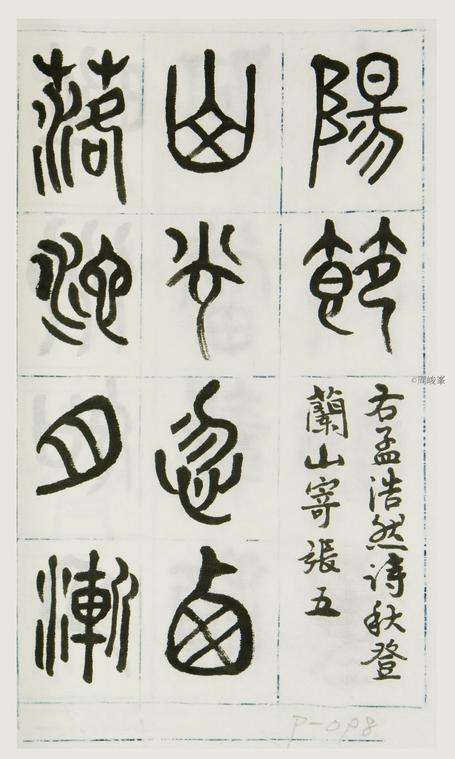 陽節
右孟浩然詩秋登
蘭山寄張五
山光忽西
落池月漸
P-098